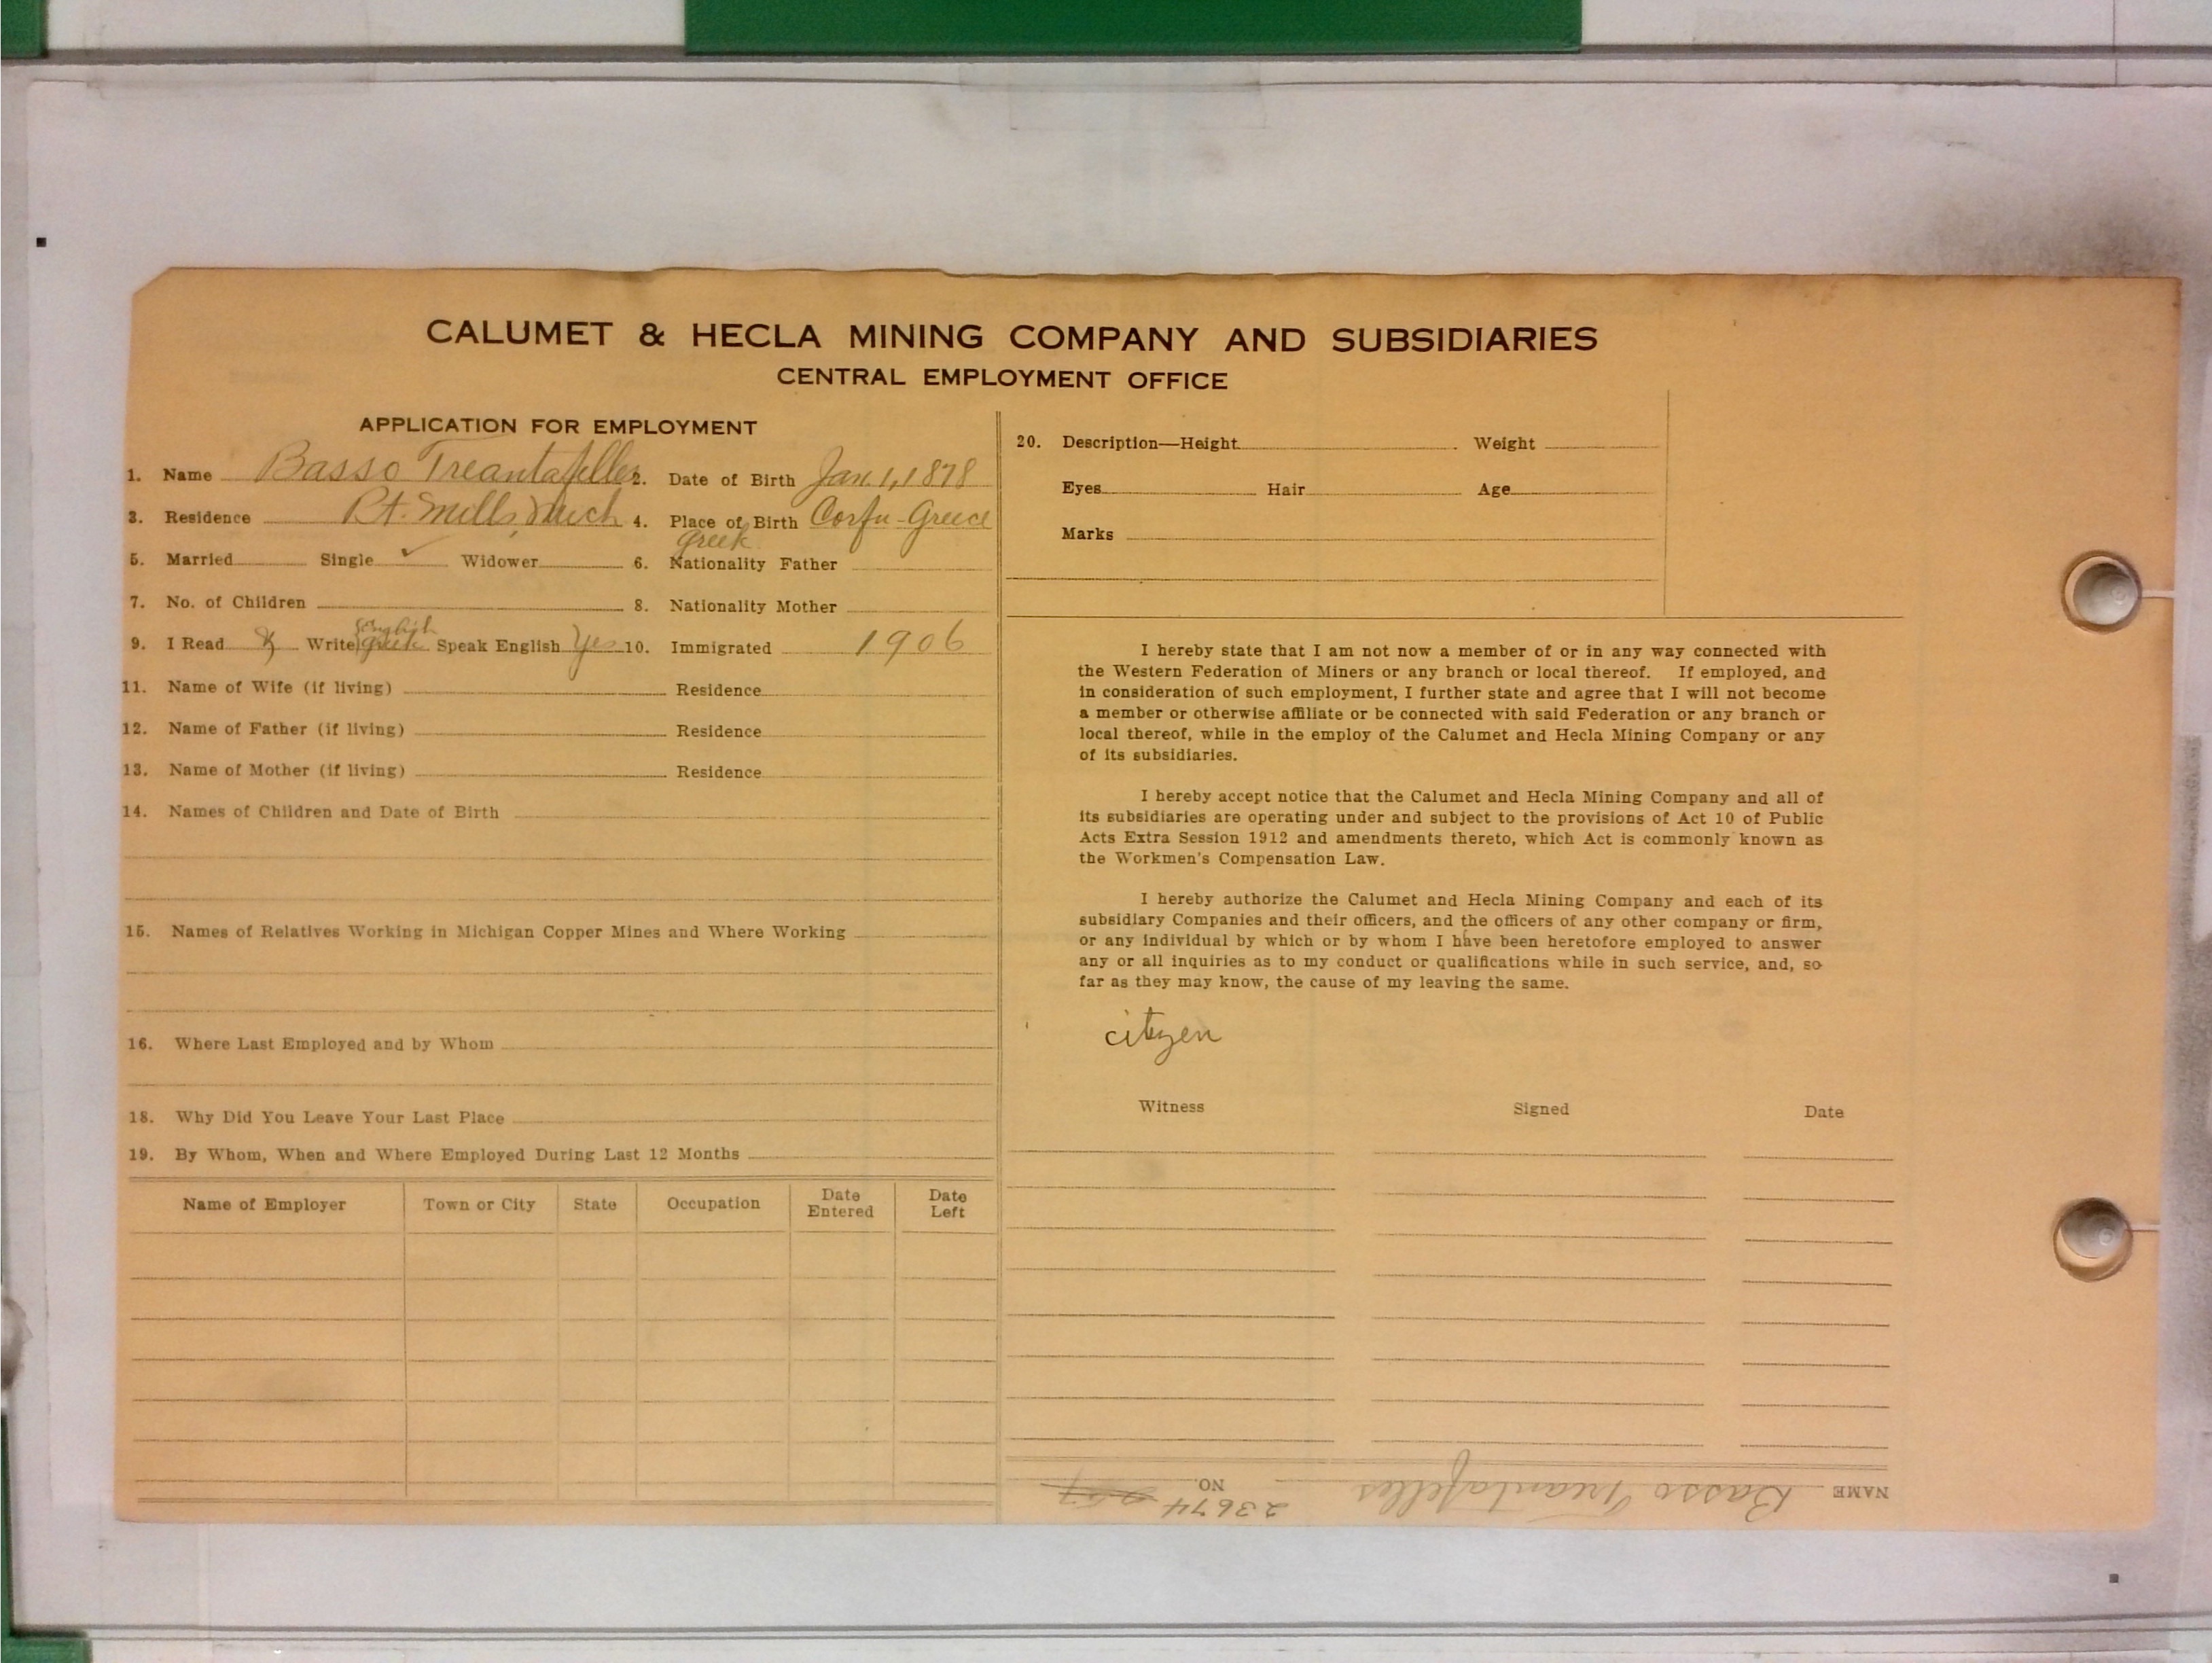 CALUMET & HECLA MINING COMPANY AND SUBSIDIARIES
CENTRAL EMPLOYMENT OFFICE
APPLICATION FOR EMPLOYMENT
1. Name Basso Treantafelles 2. Date of Birth Jan. 1, 1878
3. Residence Pt. Mills, Mich 4. Place of Birth Corfu - Greece
Greek
5. Married Single ✓ Widower 6. Nationality Father
7. No. of Children 8. Nationality Mother
English
9. I Read & Write Greek Speak English Yes 10. Immigrated 1906
11. Name of Wife (if living) Residence
12. Name of Father (if living) Residence
13. Name of Mother (if living) Residence
14. Names of Children and Date of Birth
15. Names of Relatives Working in Michigan Copper Mines and Where Working
16. Where Last Employed and by Whom
18. Why Did You Leave Your Last Place
19. By Whom, When and Where Employed During Last 12 Months
Name of Employer Town or City State Occupation Date Entered Date Left
20. Description—Height Weight
Eyes Hair Age
Marks
I hereby state that I am not now a member of or in any way connected with
the Western Federation of Miners or any branch or local thereof. If employed, and
in consideration of such employment, I further state and agree that I will not become
a member or otherwise affiliate or be connected with said Federation or any branch or
local thereof, while in the employ of the Calumet and Hecla Mining Company or any
of its subsidiaries.
I hereby accept notice that the Calumet and Hecla Mining Company and all of
its subsidiaries are operating under and subject to the provisions of Act 10 of Public
Acts Extra Session 1912 and amendments thereto, which Act is commonly known as
the Workmen's Compensation Law.
I hereby authorize the Calumet and Hecla Mining Company and each of its
subsidiary Companies and their officers, and the officers of any other company or firm,
or any individual by which or by whom I have been heretofore employed to answer
any or all inquiries as to my conduct or qualifications while in such service, and, so
far as they may know, the cause of my leaving the same.
citizen
Witness Signed Date
NAME Basso Treantafelles NO. 23674